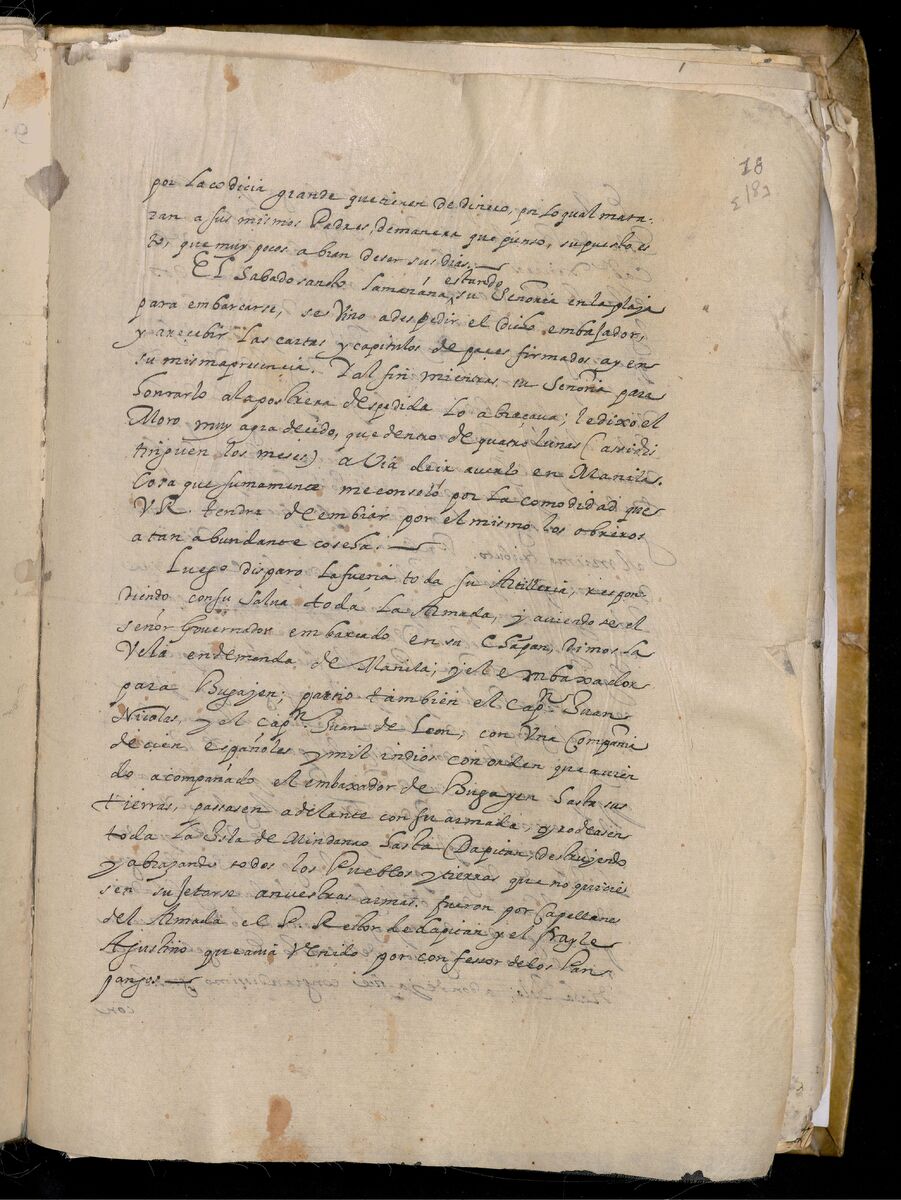 18
por la codicia grande que tienen de dinero, por lo qual mata-
ran a sus mismos Padres, de manera que pienso, supuesto es
to, que muy pocos abian de ser sus dias.
El Sabado santo la mañana, estando su Señoria en la plaja
para embarcarse, se vino a despedir el dicho embajador,
y a recibir las cartas y capitulos de paces firmados ay en
su misma presencia. Y al fin mientras su Señoria para
honrarlo a la postrera despedida lo abraçava; le dixo el
Moro muy agradecido, que dentro de quatro lunas (assi dis
tinguen los meses) avia de ir a verlo en Manila.
Cosa que sumamente me consoló por la comodidad que
V.R. tendra de embiar por el mismo los obreros
a tan abundante coseha.
Luego disparo la fuerça toda su Artilleria, respon
diendo con su salva toda la Armada, y aviendose el
señor Governador embarcado en su Champan, dimos la
Vela en demanda de Manila; y el embaxador
para Bugajen; partio tambien el Capn Juan
Nicolas, y el capn. Juan de Leon, con una Compañia
de cien españoles y mil indios con orden que avien
do acompañado el embaxador de Bugayen hasta sus
tierras, passasen adelante con su armada, y rodeasen
toda la Isla de Mindanao hasta Dapitan, destruyendo
y abrazando todos los Pueblos y tierras que no quicie
sen sujetarse a nuestras armas. fueron por Capellanes
del Armada el P. Retor de dapitan y el frayle
Agustino que avia Venido por confessor de los Pan
pangos
con